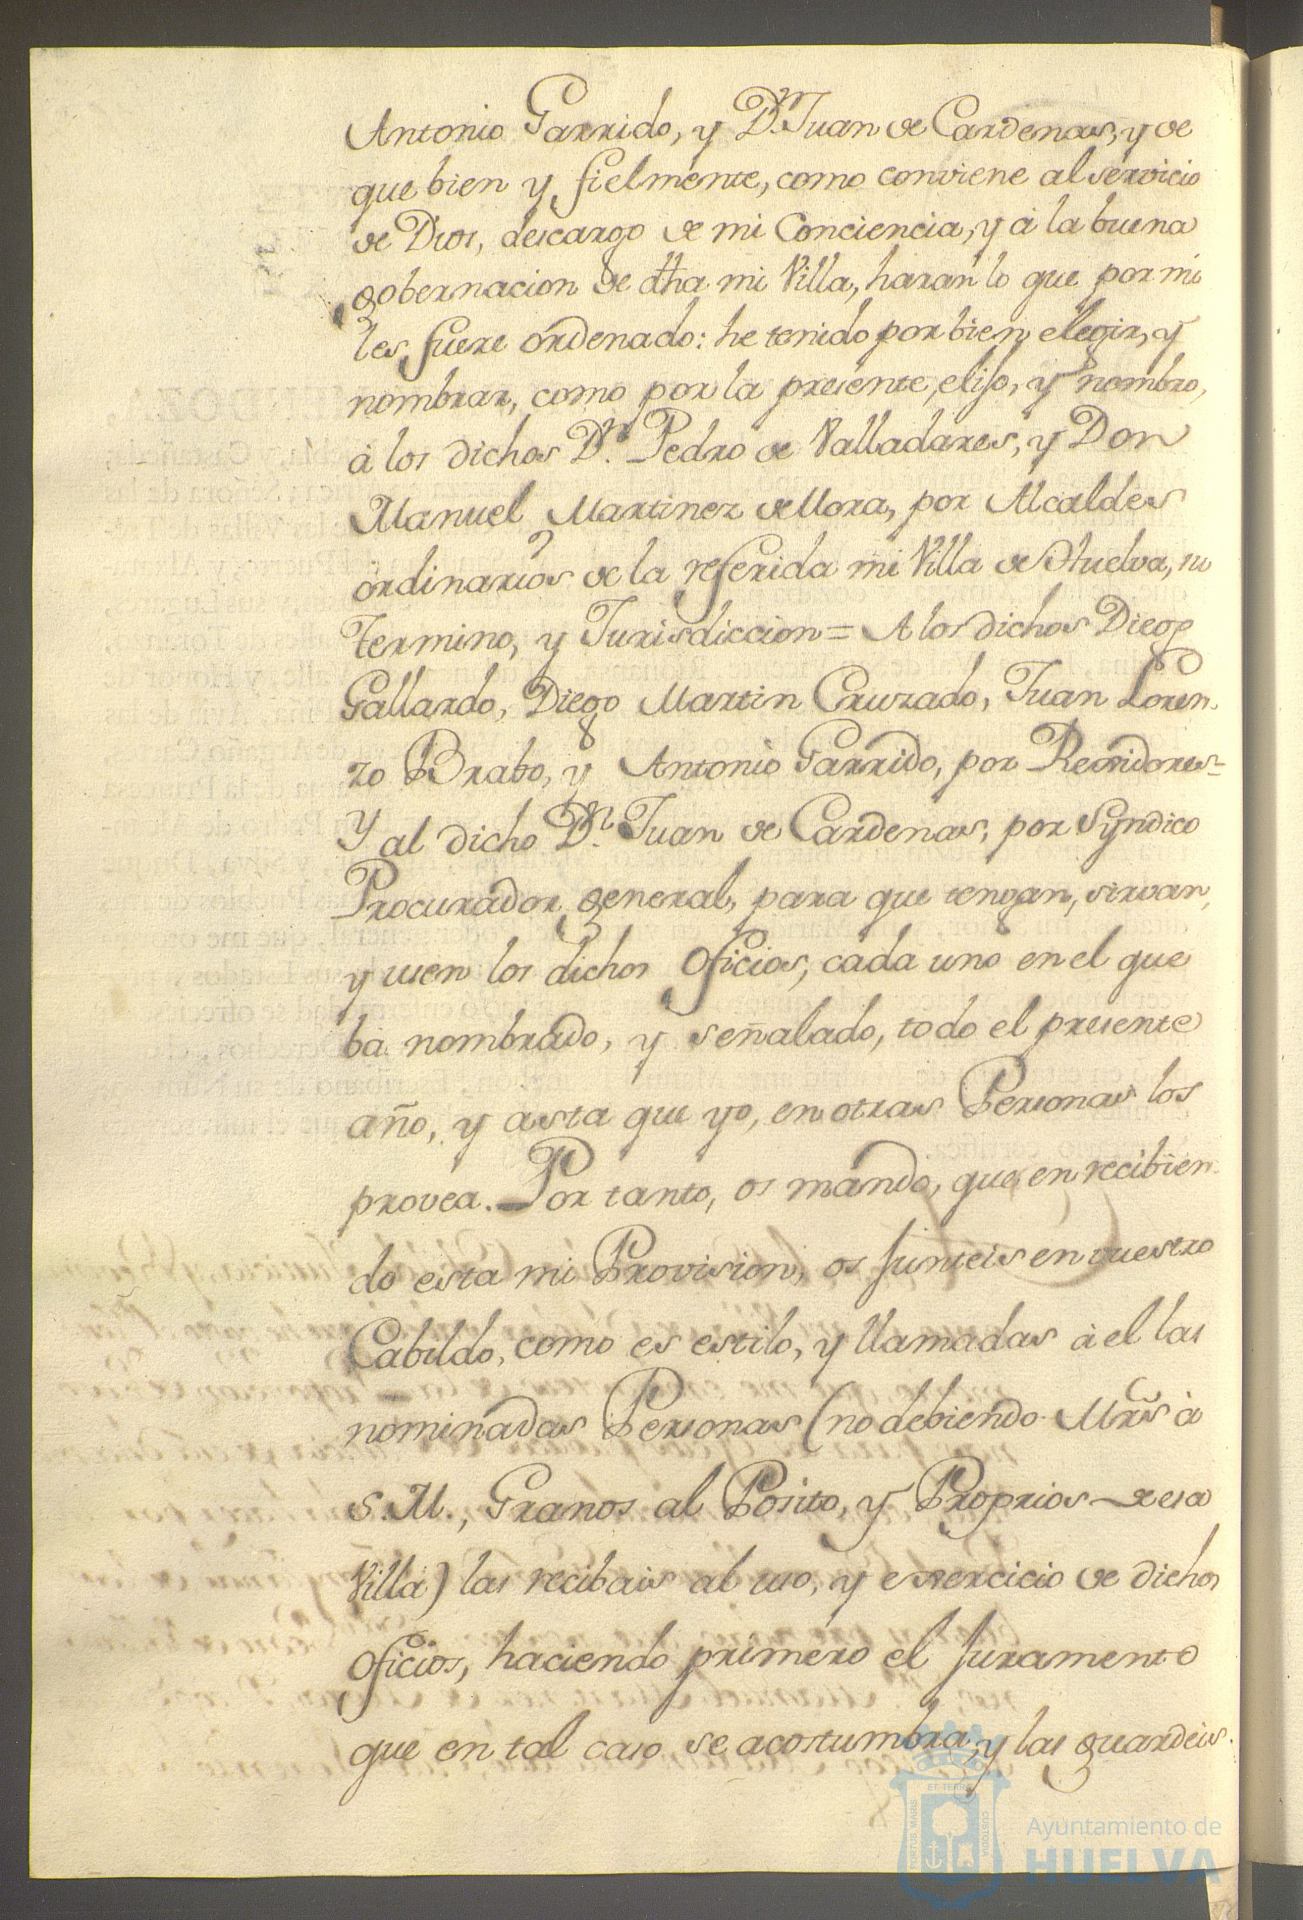 Antonio Garrido, y Dn. Juan de Cardenas, y de
que bien y fielmente, como conviene al servicio
de Dios, descargo de mi Conciencia, y à la buena
gobernacion de dha mi Villa, haràn lo que por mi
les fuere ordenado: he tenido por bien elegir, y
nombrar, como por la presente, elijo, y nombro,
à los dichos Dn. Pedro de Valladares, y Don
Manuel Martinez de Mora, por Alcaldes
ordinarios de la referida mi Villa de Huelva, su
Termino, y Jurisdiccion = A los dichos Diego
Gallardo, Diego Martin Cruzado, Juan Loren-
zo Brabo, y Antonio Garrido, por Regidores=
Y al dicho Dn. Juan de Cardenas, por Syndico
Procurador general, para que tengan, sirvan,
y usen los dichos Oficios, cada uno en el que
bà nombrado, y señalado, todo el presente
año, y asta que yo, en otras Personas los
provea. Por tanto, os mando, que en recibien-
do esta mi Provision, os junteis en vuestro
Cabildo, como es estilo, y llamadas à el las
nominadas Personas (no debiendo Mrs̃ à
S. M., Granos al Posito, y Proprios de esa
Villa) las recibais al uso, y exercicio de dichos
Oficios, haciendo primero el Juramento
que en tal caso se acostumbra, y las guardeis.
PORTUS MARIS ET TERRE CUSTODIA
Ayuntamiento de
HUELVA